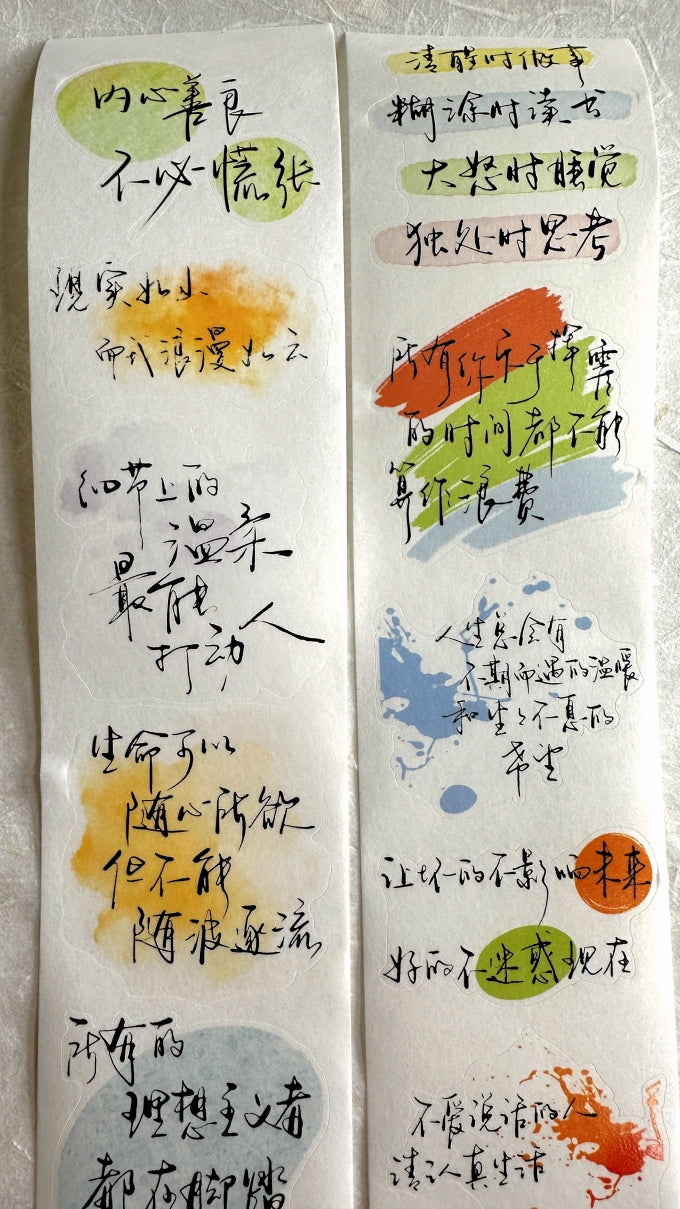 内心善良
不必慌张
现实如尘
而我浪漫如云
细节上的
温柔
最能
打动人
生命可以
随心所欲
但不能
随波逐流
所有的
理想主义者
都在脚踏
清醒时做事
糊涂时读书
大怒时睡觉
独处时思考
所有你乐于挥霍
的时间都不能
算作浪费
人生总会有
不期而遇的温暖
和生生不息的
希望
让坏的不影响未来
好的不迷惑现在
不爱说话的人
请认真生活